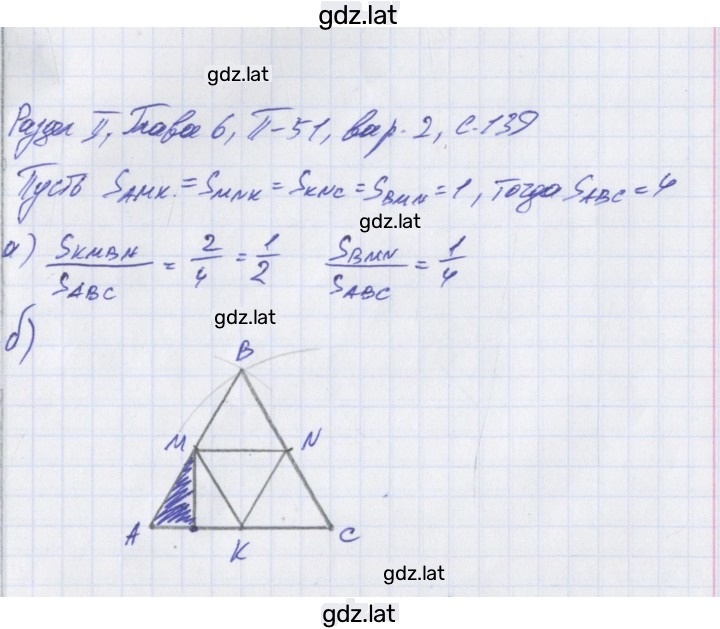 gdz.lat
gdz.lat
Раздел II, Глава 6, П-51, вар. 2, с.139
Пусть SAMK = SMNK = SKNC = SBMN = 1, тогда SABC = 4
gdz.lat
а) SKMBN/SABC = 2/4 = 1/2 SBMN/SABC = 1/4
gdz.lat
б)
B
M N
A K C
gdz.lat
gdz.lat